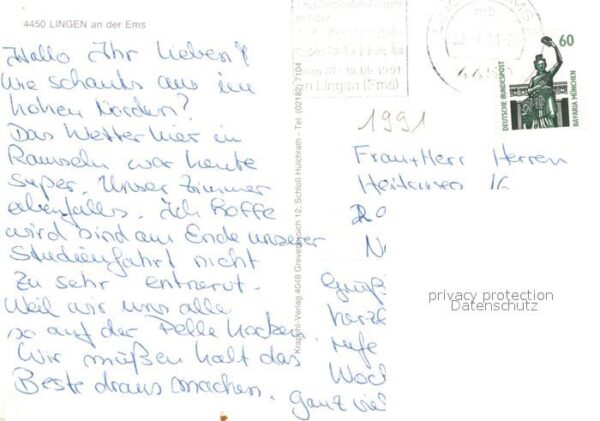 4450 LINGEN an der Ems
Hallo Ihr Lieben!
Wie schauts aus im
hohen Norden?
Das Wetter hier in
war heute
super. Unser Zimmer
ebenfalls. Ich hoffe
wird sind am Ende unserer
Studienfahrt nicht
zu sehr entnervt.
Weil wir uns alle
so auf der Pelle hocken.
Wir müßen halt das
Beste draus machen.
Krapohl-Verlag 4048 Grevenbroich 12, Schloß Hülchrath · Tel. (02182) 7104
1991
in Lingen (Ems)
60
DEUTSCHE BUNDESPOST
BAVARIA MÜNCHEN
1991
Frau + Herr Herren
Grüß
herzl
rufe
Woch
Ganz viel
privacy protection
Datenschutz